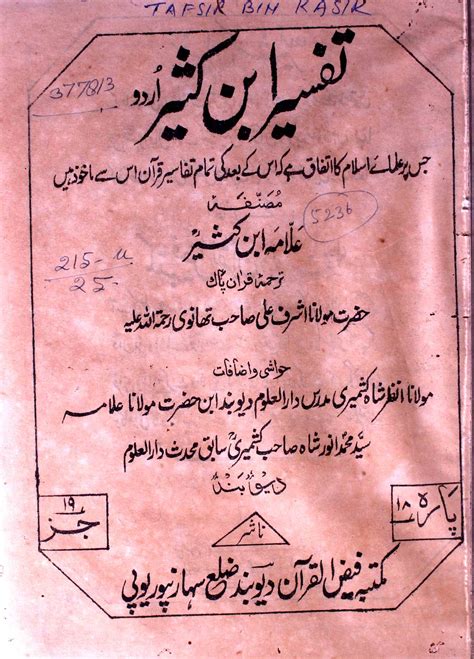 TAFSIR BIN KASIR
37783
تفسیر ابن کثیر اردو
جس پر علمائے اسلام کا اتفاق ہے کہ اس کے بعد کی تمام تفاسیر قرآن اس سے ماخوذ ہیں
مصنفہ
5236
علامہ ابن کثیرؒ
215-u
25
ترجمۂ قرآن پاک
حضرت مولانا اشرف علی صاحب تھانوی رحمۃ اللہ علیہ
حواشی و اضافات
مولانا انظر شاہ کشمیری مدرس دارالعلوم دیوبند ابن حضرت مولانا علامہ
سید محمد انور شاہ صاحب کشمیریؒ سابق محدث دارالعلوم
دیوبند
پارہ ۱۸
جز ۱۹
ناشر
مکتبہ فیض القرآن دیوبند ضلع سہارنپور یوپی